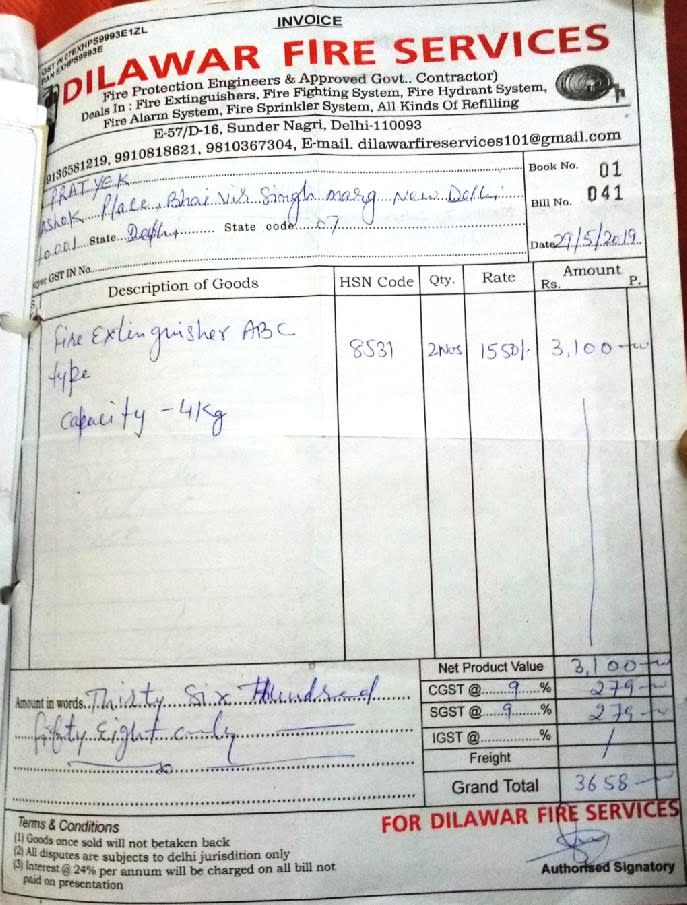 INVOICE
GST IN 07EXHPS9993E1ZL
PAN EXHPS9993E
DILAWAR FIRE SERVICES
Fire Protection Engineers & Approved Govt.. Contractor)
Deals In : Fire Extinguishers, Fire Fighting System, Fire Hydrant System,
Fire Alarm System, Fire Sprinkler System, All Kinds Of Refilling
E-57/D-16, Sunder Nagri, Delhi-110093
9136581219, 9910818621, 9810367304, E-mail. dilawarfireservices101@gmail.com
PRATYEK
Ashok Place, Bhai Vir Singh marg New Delhi
State Delhi State code 07
GST IN No.
Book No. 01
Bill No. 041
Date 29/5/2019
S. Description of Goods HSN Code Qty. Rate Amount
Rs. P.
Fire Extinguisher ABC 8531 2Nos 1550/- 3,100
type
Capacity - 4Kg
Net Product Value 3,100
CGST @ 9 % 279
SGST @ 9 % 279
IGST @ %
Freight
Grand Total 3658
Amount in words Thirty Six Hundred
fifty Eight only
Terms & Conditions
(1) Goods once sold will not betaken back
(2) All disputes are subjects to delhi jurisdition only
(3) Interest @ 24% per annum will be charged on all bill not
paid on presentation
FOR DILAWAR FIRE SERVICES
Authorised Signatory